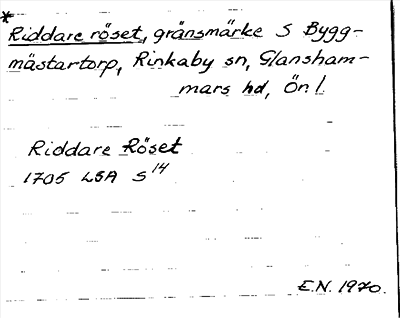 *
Riddare röset, gränsmärke S Bygg-
mästartorp, Rinkaby sn, Glansham-
mars hd, Ön l.
Riddare Röset
1705 LSA S 14
E.N. 1970.